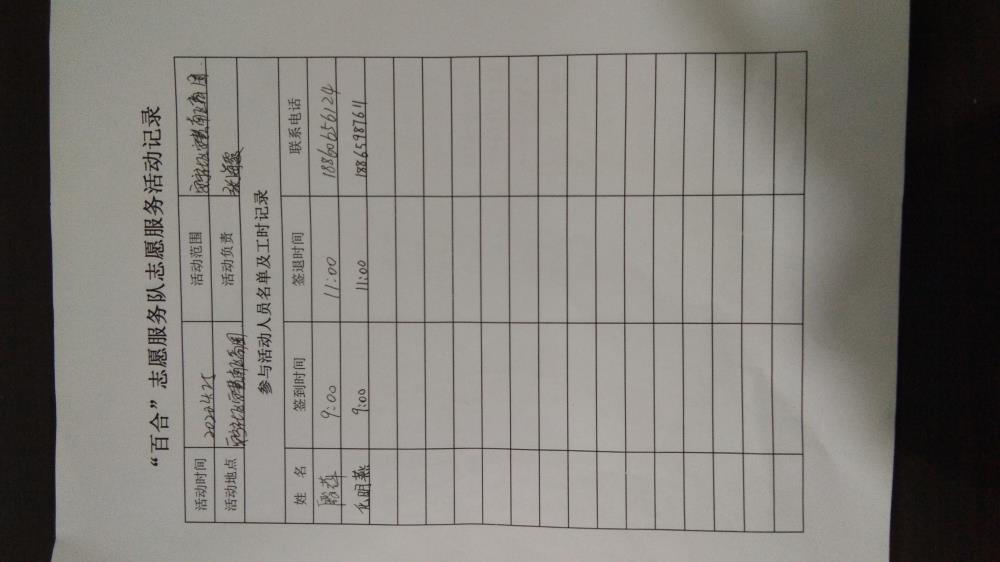 “百合”志愿服务队志愿服务活动记录
活动时间 2020.4.25 活动范围
活动地点 活动负责
参与活动人员名单及工时记录
姓 名 签到时间 签退时间 联系电话
9:00 11:00 18860656124
明燕 9:00 11:00 18865987611